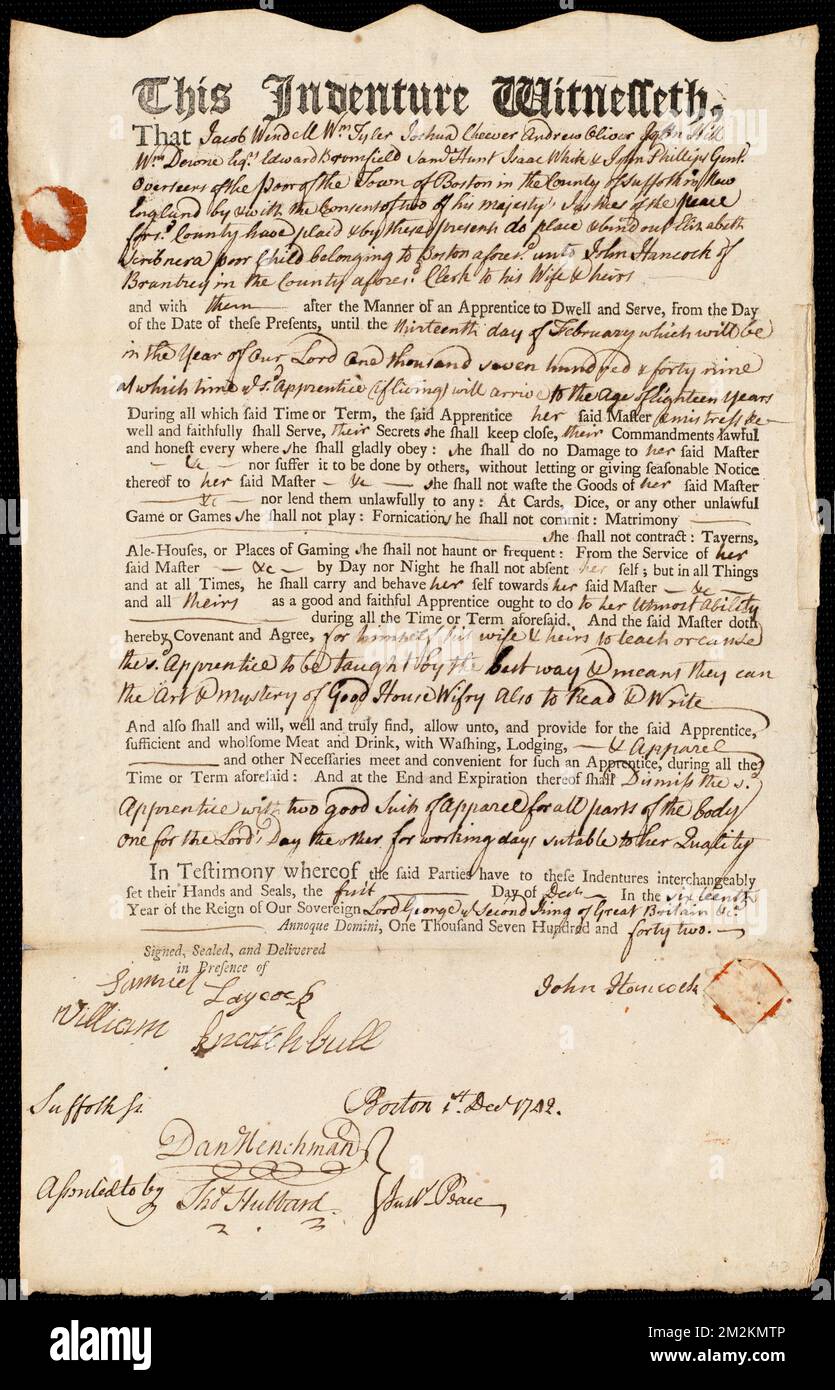 This Indenture Witnesseth,
That Jacob Wendell Wm Tyler Joshua Cheever Andrew Oliver John Hill
Wm Downe Esqrs Edward Bromfield Saml Hunt Isaac White & John Phillips Gent.
Overseers of the Poor of the Town of Boston in the County of Suffolk in New
England by & with the Consent of two of his majesty's Justices of the peace
for sd. County have plaid & by these presents do place & bind out Elizabeth
Scribner a poor Child belonging to Boston afores.d unto John Hancock of
Brantrey in the County afores.d Clerk to his Wife & heirs
and with them after the Manner of an Apprentice to Dwell and Serve, from the Day
of the Date of these Presents, until the thirteenth day of February which will be
in the Year of Our Lord One thousand seven hundred & forty nine
at which time ye s.d Apprentice (if living) will arrive to the Age of Eighteen Years
During all which said Time or Term, the said Apprentice her said Master & mistress &c
well and faithfully shall Serve, their Secrets she shall keep close, their Commandments lawful
and honest every where she shall gladly obey: she shall do no Damage to her said Master
&c nor suffer it to be done by others, without letting or giving seasonable Notice
thereof to her said Master &c she shall not waste the Goods of her said Master
&c nor lend them unlawfully to any: At Cards, Dice, or any other unlawful
Game or Games she shall not play: Fornication she shall not commit: Matrimony
she shall not contract: Taverns,
Ale-Houses, or Places of Gaming she shall not haunt or frequent: From the Service of her
said Master &c by Day nor Night he shall not absent her self; but in all Things
and at all Times, he shall carry and behave her self towards her said Master &c
and all theirs as a good and faithful Apprentice ought to do to her utmost ability
during all the Time or Term aforesaid. And the said Master doth
hereby Covenant and Agree, for himself his wife & heirs to teach or cause
the s.d Apprentice to be taught by the best way & means they can
the Art & mystery of Good House Wifry Also to Read & Write
And also shall and will, well and truly find, allow unto, and provide for the said Apprentice,
sufficient and wholsome Meat and Drink, with Washing, Lodging, & Apparel
and other Necessaries meet and convenient for such an Apprentice, during all the
Time or Term aforesaid: And at the End and Expiration thereof shall Dismiss the s.d
Apprentice with two good Suits of Apparel for all parts of the body
one for the Lord's Day the other for working days sutable to her Quality
In Testimony whereof the said Parties have to these Indentures interchangeably
set their Hands and Seals, the first Day of Decr In the sixteenth
Year of the Reign of Our Sovereign Lord George ye Second King of Great Britain &c.
Annoque Domini, One Thousand Seven Hundred and forty two.
Signed, Sealed, and Delivered
in Presence of
Samuel Laycock John Hancock
William Knatchbull
Suffolk ss. Boston 1st. Decr 1742.
Dan Henchman
Assented to by Thos Hubbard Justs. Peace
43
alamy
Image ID: 2M2KMTP
www.alamy.com